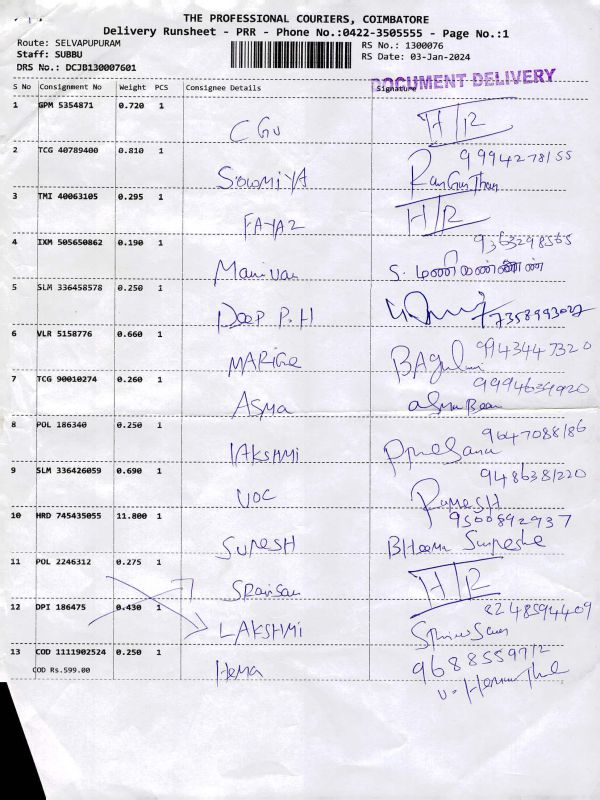 THE PROFESSIONAL COURIERS, COIMBATORE
Delivery Runsheet - PRR - Phone No.:0422-3505555 - Page No.:1
Route: SELVAPUPURAM
RS No.: 1300076
Staff: SUBBU
RS Date: 03-Jan-2024
DRS No.: DCJB130007601
DOCUMENT DELIVERY
S No Consignment No Weight PCS Consignee Details Signature
1 GPM 5354871 0.720 1
H/R
2 TCG 40789400 0.810 1
9994278155
SOWMIYA
3 TMI 40063105 0.295 1
H/R
FAYAZ
4 IXM 505650862 0.190 1
9363298565
Manivan S. மணிவண்ணன்
5 SLM 336458578 0.250 1
DEEP P.H 7358993027
6 VLR 5158776 0.660 1
9943447320
7 TCG 90010274 0.260 1
9994634920
ASMA
8 POL 186340 0.250 1
9647088186
LAKSHMI
9 SLM 336426059 0.690 1
9486381220
VOC RAMESH
10 HRD 745435055 11.800 1
9500892937
SURESH
11 POL 2246312 0.275 1
H/R
12 DPI 186475 0.430 1
8248594409
LAKSHMI
13 COD 1111902524 0.250 1
COD Rs.599.00
Hema